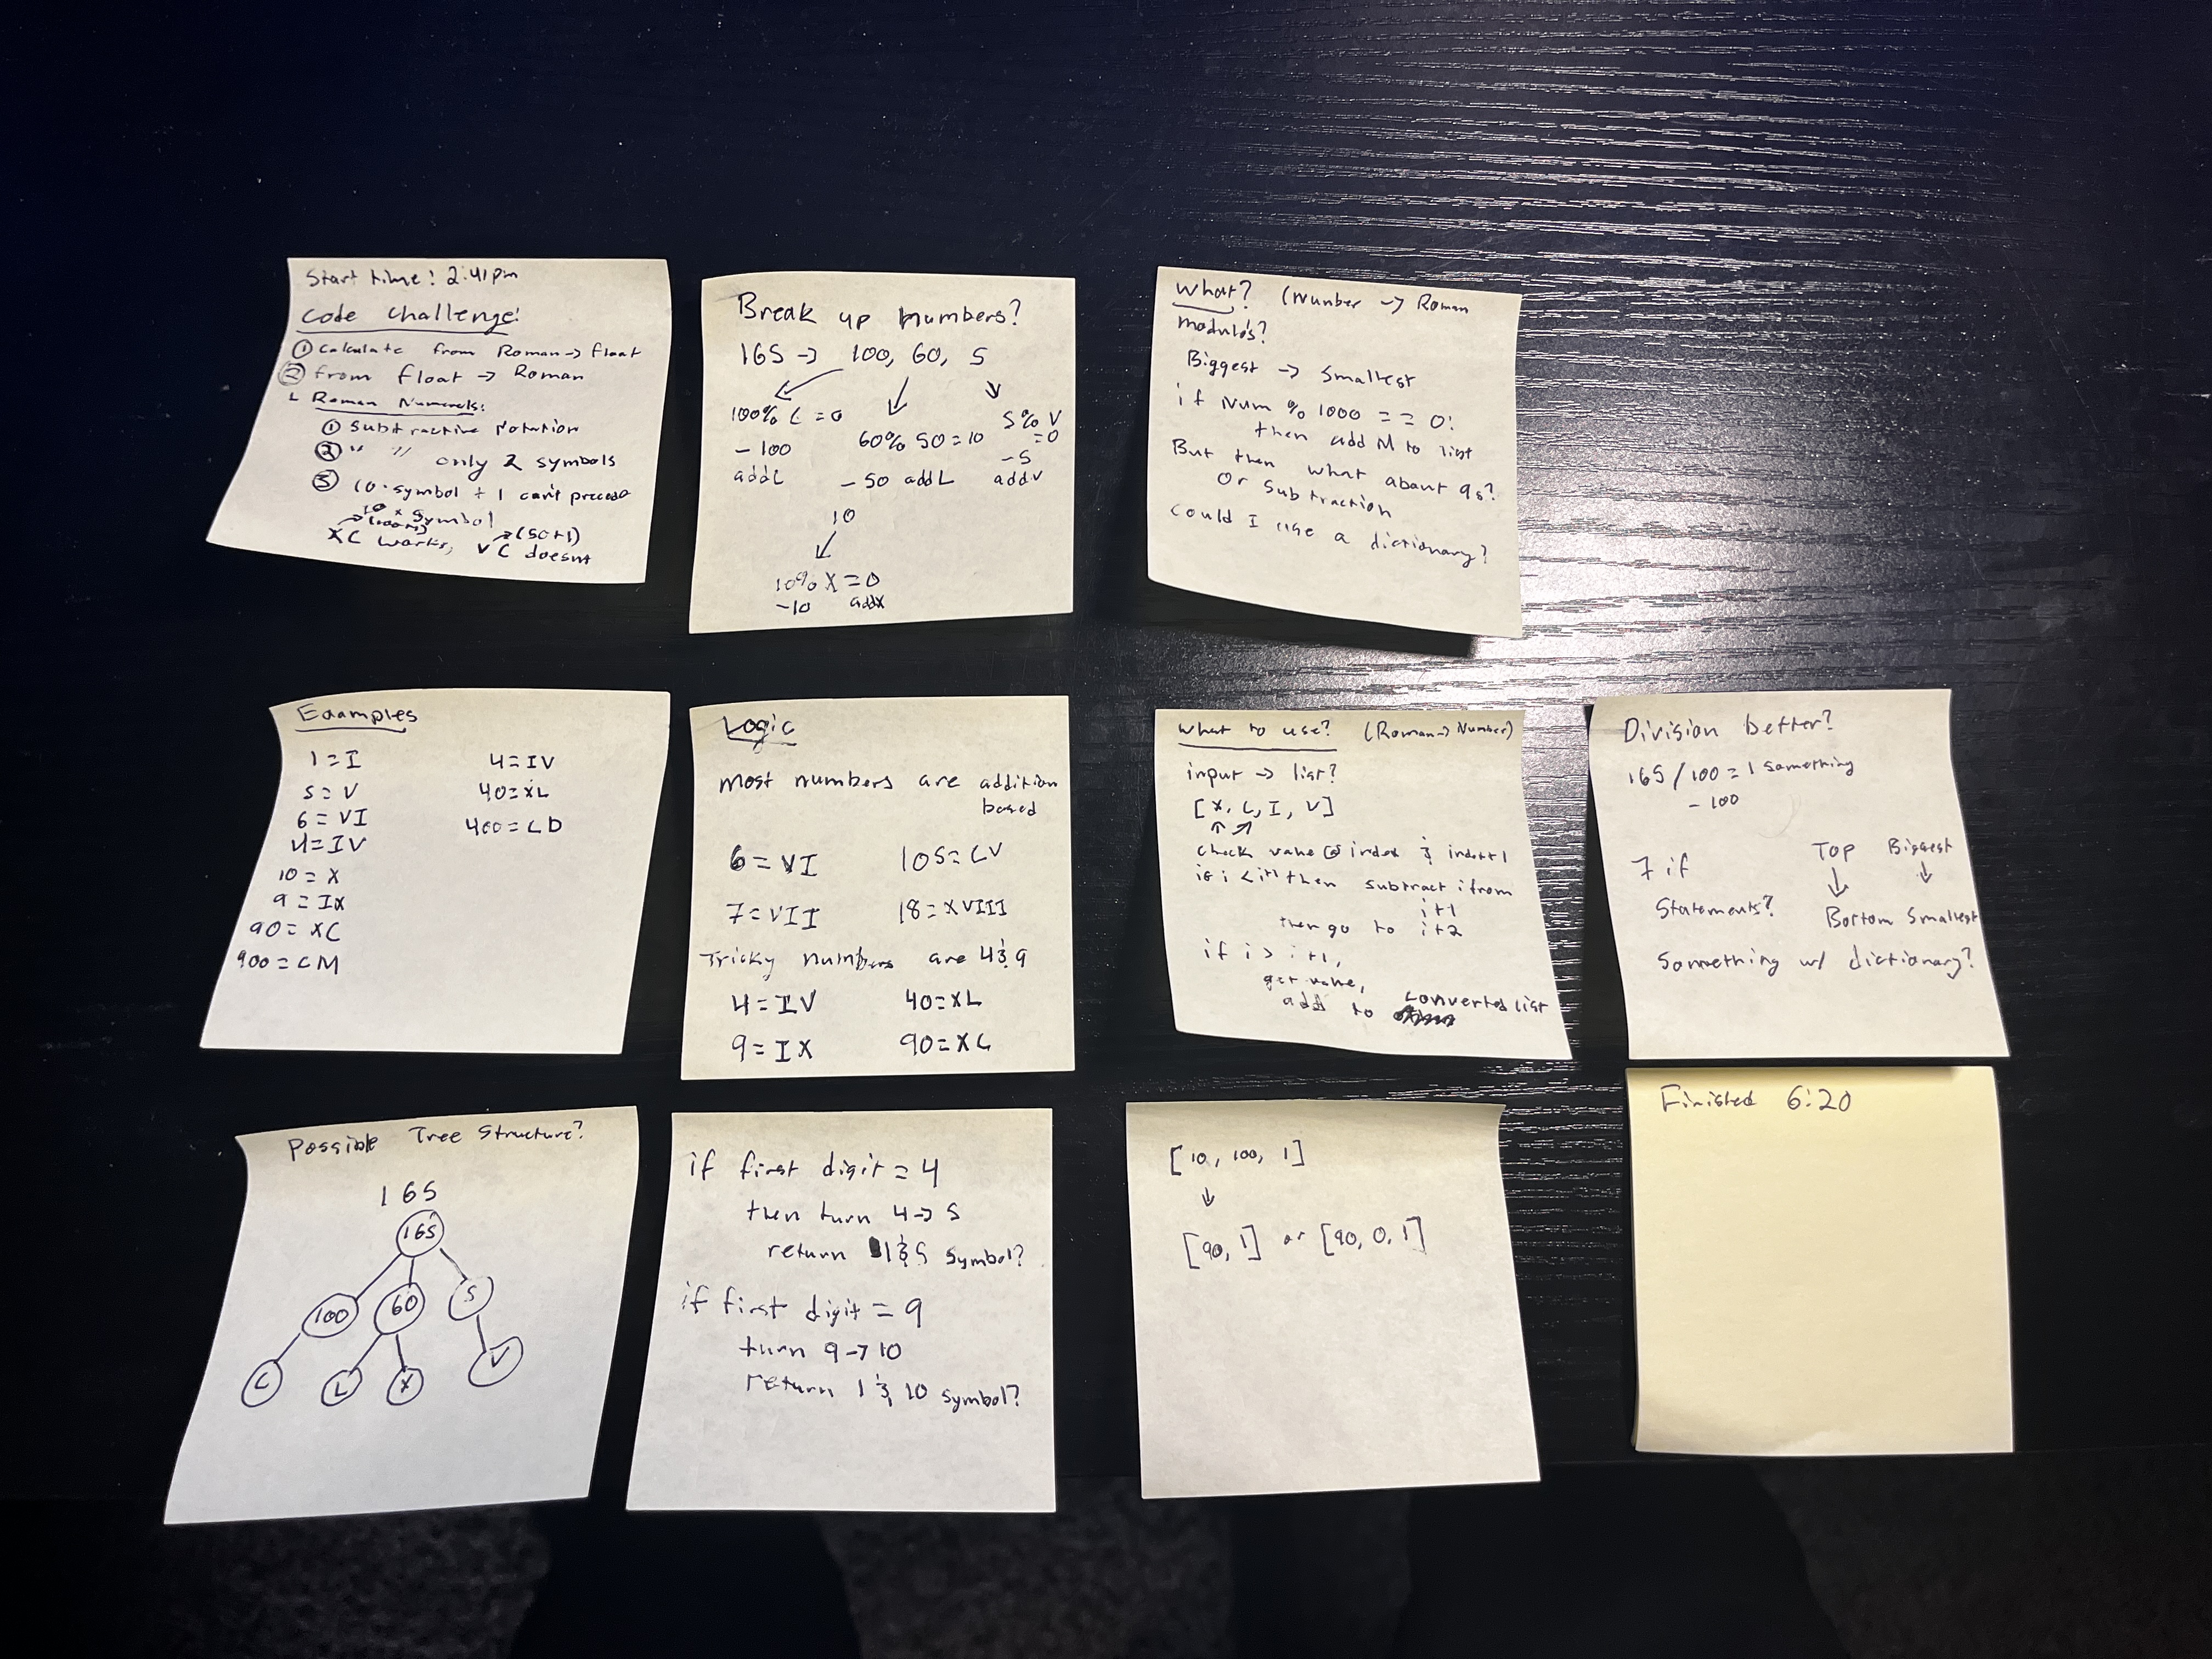 Start time: 2:41pm
Code Challenge:
① Calculate from Roman -> float
② from float -> Roman
Roman Numerals:
① Subtractive Notation
② " " only 2 symbols
③ 10·symbol + 1 can't precede
10 x symbol
(100+1) (50+1)
XC works, VC doesnt
Break up numbers?
165 -> 100, 60, 5
100% C = 0
60% 50 = 10
5% V
=0
- 100
- 5
addC
- 50 addL
addV
10
10% X = 0
-10 addX
What? (Number -> Roman
Modulos?
Biggest -> Smallest
if Num % 1000 == 0:
then add M to list
But then what about 9s?
Or Subtraction
Could I use a dictionary?
Examples
1 = I
5 = V
6 = VI
4 = IV
10 = X
9 = IX
90 = XC
900 = CM
4 = IV
40 = XL
400 = CD
Logic
Most numbers are addition
based
6 = VI 105 = CV
7 = VII 18 = XVIII
Tricky numbers are 4 & 9
4 = IV 40 = XL
9 = IX 90 = XC
What to use? (Roman -> Number)
input -> list?
[X, C, I, V]
check value @ index & index+1
if i < i+1 then subtract i from
i+1
then go to i+2
if i > i+1,
get value,
add to converted list
Division better?
165 / 100 = 1 something
- 100
7 if
Statements?
Top Biggest
Bottom Smallest
Something w/ dictionary?
Possible Tree Structure?
165
165
100 60 5
C L X V
if first digit = 4
then turn 4 -> 5
return 1 & 5 symbol?
if first digit = 9
turn 9 -> 10
return 1 & 10 symbol?
[10, 100, 1]
[90, 1] or [90, 0, 1]
Finished 6:20